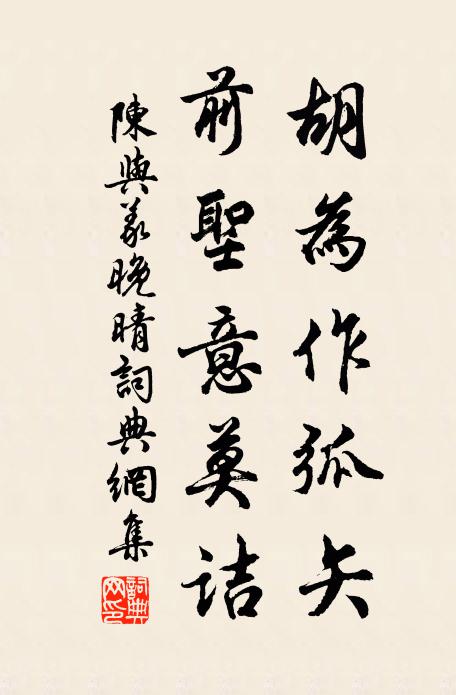 胡為作弧矢
前聖意莫詰
陳與義晚晴詞典網集
詞典網印